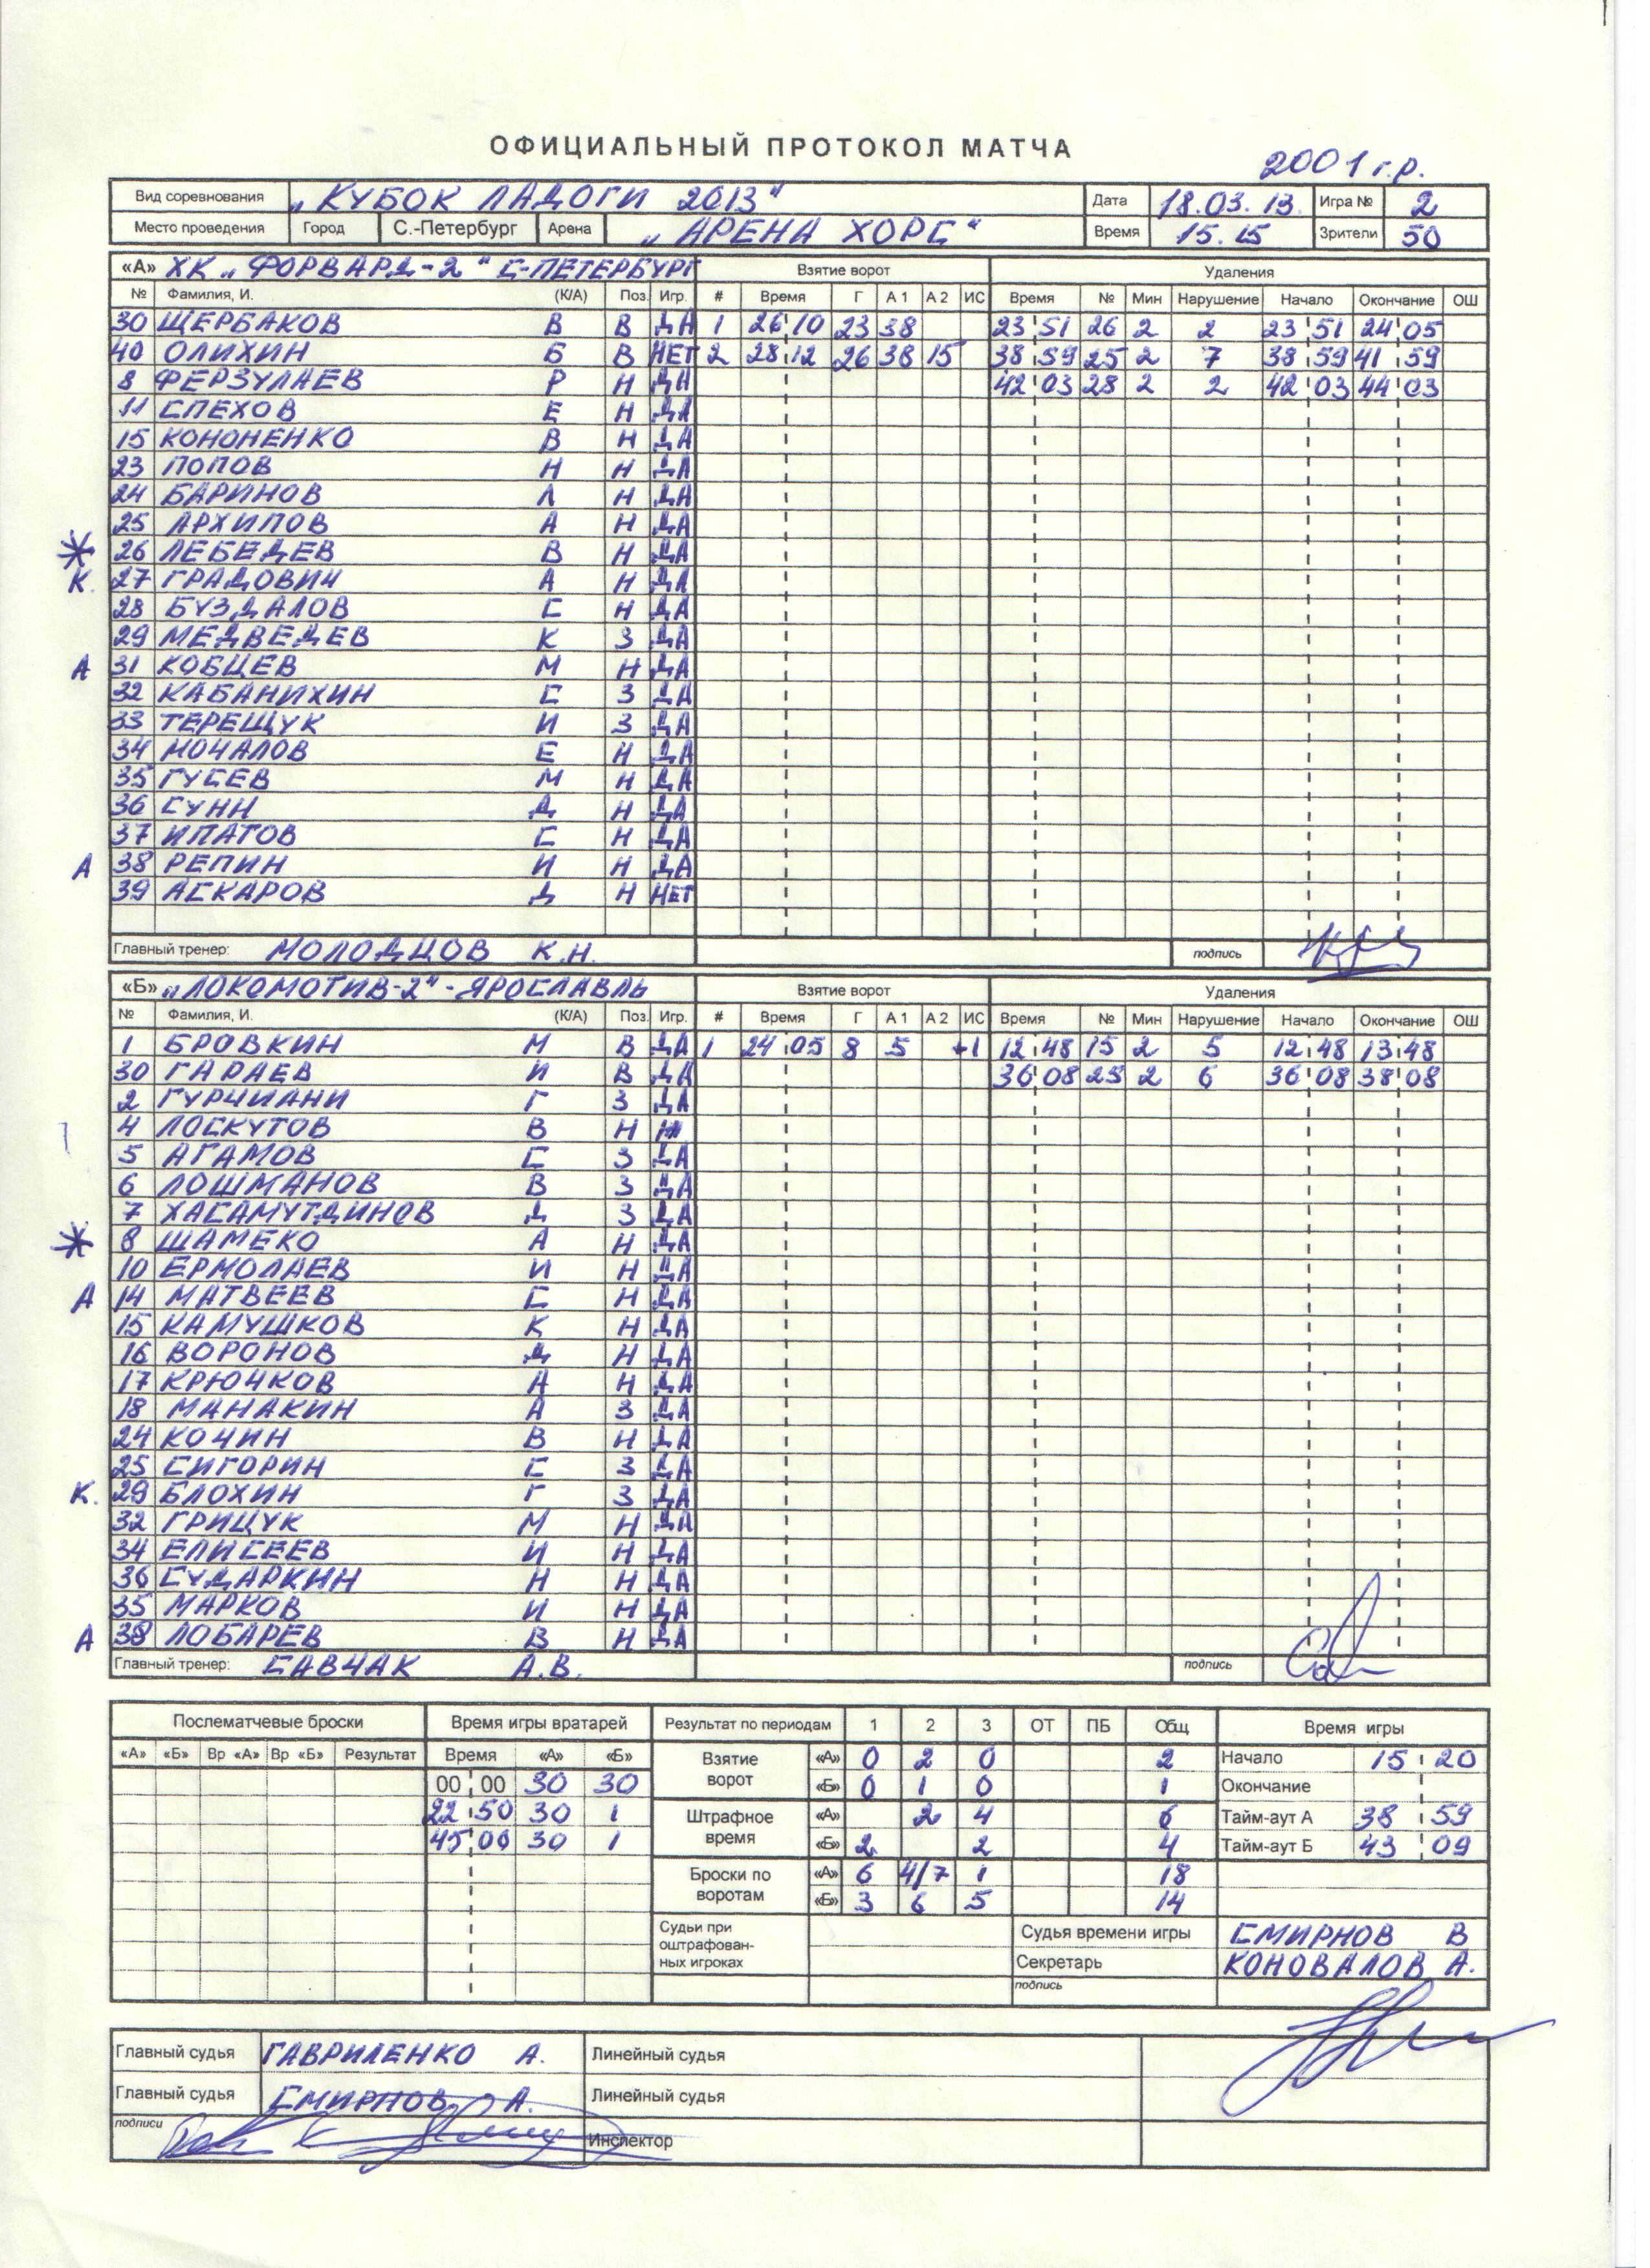 ОФИЦИАЛЬНЫЙ ПРОТОКОЛ МАТЧА
2001 г.р.
Вид соревнования „КУБОК ЛАДОГИ 2013" Дата 18.03.13. Игра № 2
Место проведения Город С.-Петербург Арена „АРЕНА ХОРС" Время 15.15 Зрители 50
«А» ХК „ФОРВАРД-2" С-ПЕТЕРБУРГ Взятие ворот Удаления
№ Фамилия, И. (К/А) Поз. Игр. # Время Г А 1 А 2 ИС Время № Мин Нарушение Начало Окончание ОШ
30 ЩЕРБАКОВ В В ДА 1 26 10 23 38 23 51 26 2 2 23 51 24 05
40 ОЛИХИН Б В НЕТ 2 28 12 26 38 15 38 59 25 2 7 38 59 41 59
8 ФЕРЗУЛАЕВ Р Н ДА 42 03 28 2 2 42 03 44 03
11 СПЕХОВ Е Н ДА
15 КОНОНЕНКО В Н ДА
23 ПОПОВ Н Н ДА
24 БАРИНОВ Л Н ДА
25 АРХИПОВ А Н ДА
* 26 ЛЕБЕДЕВ В Н ДА
К. 27 ГРАДОВИЧ А Н ДА
28 БУЗДАЛОВ С Н ДА
29 МЕДВЕДЕВ К З ДА
А 31 КОБЦЕВ М Н ДА
32 КАБАНИХИН С З ДА
33 ТЕРЕЩУК И З ДА
34 МОЧАЛОВ Е Н ДА
35 ГУСЕВ М Н ДА
36 СУНН Д Н ДА
37 ИПАТОВ С Н ДА
А 38 РЕПИН И Н ДА
39 АСКАРОВ Д Н НЕТ
Главный тренер: МОЛОДЦОВ К.Н. подпись
«Б» „ЛОКОМОТИВ-2"-ЯРОСЛАВЛЬ Взятие ворот Удаления
№ Фамилия, И. (К/А) Поз. Игр. # Время Г А 1 А 2 ИС Время № Мин Нарушение Начало Окончание ОШ
1 БРОВКИН М В ДА 1 24 05 8 5 +1 12 48 15 2 5 12 48 13 48
30 ГАРАЕВ И В ДА 36 08 25 2 6 36 08 38 08
2 ГУРЧИАНИ Г З ДА
4 ЛОСКУТОВ В Н
5 АГАМОВ С З ДА
6 ЛОШМАНОВ В З ДА
7 ХАСАМУТДИНОВ Д З ДА
* 8 ШАМЕКО А Н ДА
10 ЕРМОЛАЕВ И Н ДА
А 14 МАТВЕЕВ С Н ДА
15 КАМУШКОВ К Н ДА
16 ВОРОНОВ Д Н ДА
17 КРЮЧКОВ А Н ДА
18 МАНАКИН А З ДА
24 КОЧИН В Н ДА
25 СИГОРИН С З ДА
К. 29 БЛОХИН Г З ДА
32 ГРИЦУК М Н ДА
34 ЕЛИСЕЕВ И Н ДА
36 СУДАРКИН Н Н ДА
35 МАРКОВ И Н ДА
А 38 ЛОБАРЕВ В Н ДА
Главный тренер: САВЧАК А.В. подпись
Послематчевые броски Время игры вратарей Результат по периодам 1 2 3 ОТ ПБ Общ Время игры
«А» «Б» Вр «А» Вр «Б» Результат Время «А» «Б» Взятие ворот «А» 0 2 0 2 Начало 15 20
00 00 30 30 «Б» 0 1 0 1 Окончание
22 50 30 1 Штрафное время «А» 2 4 6 Тайм-аут А 38 59
45 00 30 1 «Б» 2 2 4 Тайм-аут Б 43 09
Броски по воротам «А» 6 4/7 1 18
«Б» 3 6 5 14
Судьи при оштрафован- ных игроках Судья времени игры СМИРНОВ В
Секретарь КОНОВАЛОВ А.
подпись
Главный судья ГАВРИЛЕНКО А. Линейный судья
Главный судья СМИРНОВ А. Линейный судья
подписи Инспектор